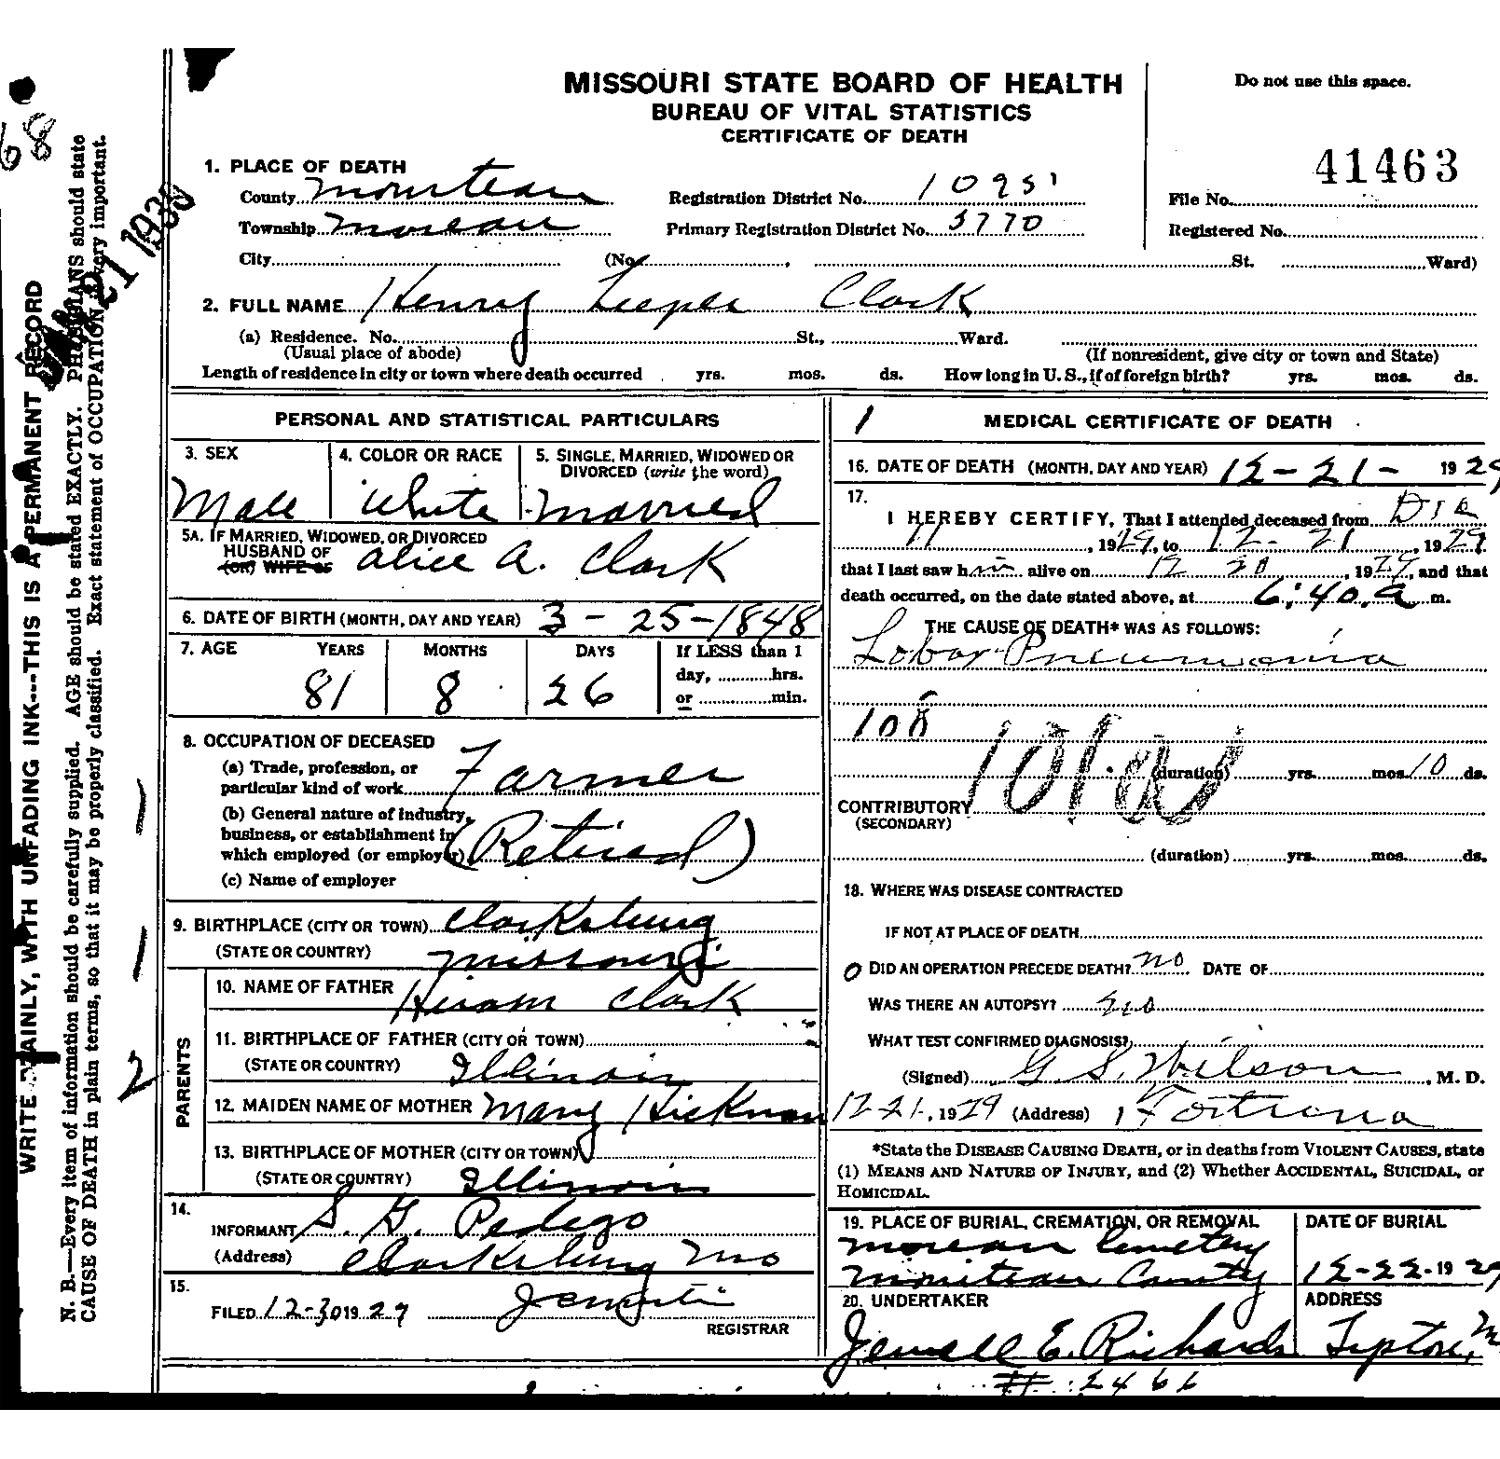 MISSOURI STATE BOARD OF HEALTH
BUREAU OF VITAL STATISTICS
CERTIFICATE OF DEATH
Do not use this space.
41463
1. PLACE OF DEATH
County Moniteau Registration District No. File No.
Township Moreau Primary Registration District No. 5770 Registered No.
City (No. , St. Ward)
2. FULL NAME Henry Leeper Clark
(a) Residence. No. St., Ward.
(Usual place of abode) (If nonresident, give city or town and State)
Length of residence in city or town where death occurred yrs. mos. ds. How long in U. S., if of foreign birth? yrs. mos. ds.
PERSONAL AND STATISTICAL PARTICULARS
3. SEX 4. COLOR OR RACE 5. SINGLE, MARRIED, WIDOWED OR
DIVORCED (write the word)
Male White Married
5A. IF MARRIED, WIDOWED, OR DIVORCED
HUSBAND OF Alice A. Clark
(OR) WIFE OF
6. DATE OF BIRTH (MONTH, DAY AND YEAR) 3-25-1848
7. AGE YEARS MONTHS DAYS If LESS than 1
day, hrs.
or min.
81 8 26
8. OCCUPATION OF DECEASED
(a) Trade, profession, or
particular kind of work Farmer
(b) General nature of industry,
business, or establishment in
which employed (or employer) (Retired)
(c) Name of employer
9. BIRTHPLACE (CITY OR TOWN) Clarksburg
(STATE OR COUNTRY) Missouri
PARENTS
10. NAME OF FATHER Hiram Clark
11. BIRTHPLACE OF FATHER (CITY OR TOWN)
(STATE OR COUNTRY) Illinois
12. MAIDEN NAME OF MOTHER Mary Hickman
13. BIRTHPLACE OF MOTHER (CITY OR TOWN)
(STATE OR COUNTRY) Illinois
14.
INFORMANT S. G. Pedego
(Address) Clarksburg Mo
15.
FILED 12-30 1929
REGISTRAR
1 MEDICAL CERTIFICATE OF DEATH
16. DATE OF DEATH (MONTH, DAY AND YEAR) 12-21- 1929
17.
I HEREBY CERTIFY, That I attended deceased from Dec
11, 1929, to 12-21, 1929
that I last saw him alive on 12 20, 1929, and that
death occurred, on the date stated above, at 6:40 a m.
THE CAUSE OF DEATH* WAS AS FOLLOWS:
Lobar Pneumonia
108
(duration) yrs. mos. 10 ds.
CONTRIBUTORY
(SECONDARY)
(duration) yrs. mos. ds.
18. WHERE WAS DISEASE CONTRACTED
IF NOT AT PLACE OF DEATH
0 DID AN OPERATION PRECEDE DEATH? no DATE OF
WAS THERE AN AUTOPSY? no
WHAT TEST CONFIRMED DIAGNOSIS?
(Signed) G. S. Wilson, M. D.
12-21, 1929 (Address) Fortuna
*State the DISEASE CAUSING DEATH, or in deaths from VIOLENT CAUSES, state
(1) MEANS AND NATURE OF INJURY, and (2) Whether ACCIDENTAL, SUICIDAL, or
HOMICIDAL.
19. PLACE OF BURIAL, CREMATION, OR REMOVAL DATE OF BURIAL
Moreau Cemetery
Moniteau County 12-22-1929
20. UNDERTAKER ADDRESS
Jewell E. Richards Tipton, Mo
# 2466
WRITE PLAINLY, WITH UNFADING INK---THIS IS A PERMANENT RECORD
N. B.—Every item of information should be carefully supplied. AGE should be stated EXACTLY. PHYSICIANS should state
CAUSE OF DEATH in plain terms, so that it may be properly classified. Exact statement of OCCUPATION is very important.
68
21 1930
2